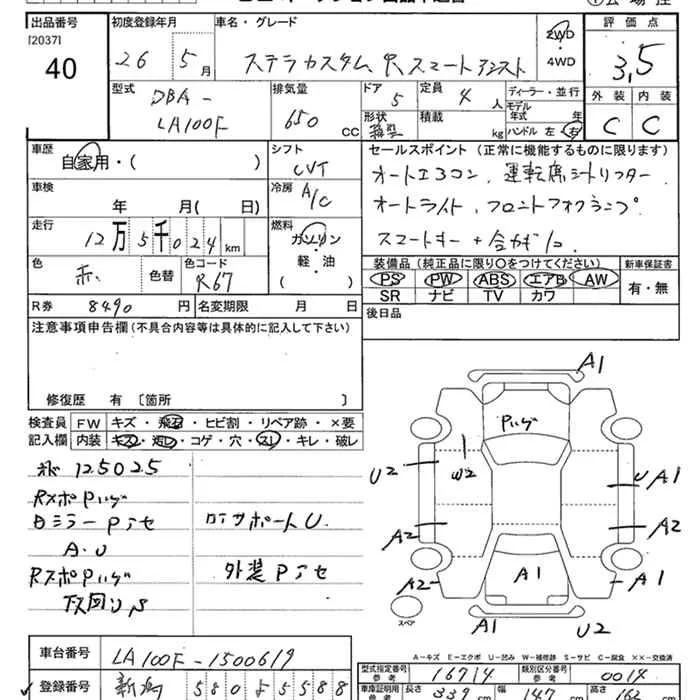 出品番号
[2037]
40
初度登録年月
26年 5月
車名・グレード
ステラカスタム R スマートアシスト
2WD
・
4WD
評価点
3,5
型式
DBA-
LA100F
排気量
650 CC
ドア
5
定員
4人
形状
積載
kg
ディーラー・並行
モデル
年式 年
ハンドル 左・右
外装
内装
C
C
車歴
自家用・( )
シフト
CVT
セールスポイント (正常に機能するものに限ります)
オートエアコン、運転席シートリフター
オートライト、フロントフォグランプ
スマートキー+合カギ1コ
車検
年 月( 日)
冷房
A/C
走行
12万5千024km
燃料
ガソリン
軽・油
( )
色
赤
色替
色コード
R67
装備品(純正品に限り○をつけてください)
PS PW ABS エアB AW
SR ナビ TV カワ
新車保証書
有・無
R券 8490円
名変期限 月 日
後日品
注意事項申告欄(不具合内容等は具体的に記入して下さい)
修復歴 有〔箇所 〕
検査員
記入欄
FW キズ・飛石・ヒビ割・リペア跡・×要
内装 キズ・汚レ・コゲ・穴・スレ・キレ・破レ
125025
RスポPハゲ
ロサポートU.
ミラーPアセ
A.U
RスポPハゲ
外装Pアセ
下回りS
A1
Pハゲ
W2
U2
U A1
A2
A2
A2
A1
A1
A1
U2
スペア
A-キズ E-エクボ U-凹み W-補修跡 S-サビ C-腐食 ××-交換済
車台番号
LA100F-1500619
登録番号
新潟 580 よ 5588
型式指定番号
参考
16714
類別区分番号
参考
0014
車庫証明用
参考
長さ 339
幅 147
高さ 162